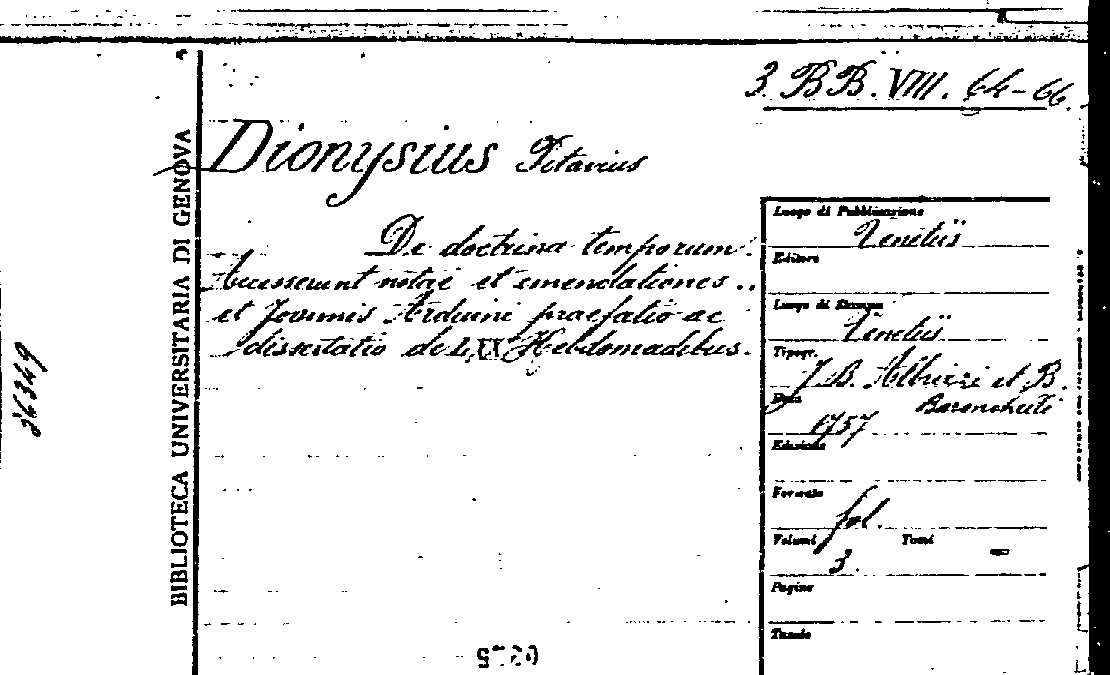 3. BB. VIII. 64-66.
Dionysius Petavius
De doctrina temporum.
Accesserunt notae et emendationes ..
et Joannis Arduini praefatio ac
dissertatio de LXX Hebdomadibus.
BIBLIOTECA UNIVERSITARIA DI GENOVA
26349
Luogo di Pubblicazione
Venetiis
Editore
Luogo di Stampa
Venetiis
Tipogr.
J. B. Albrizzi et B.
Data
1757
Edizione
Formato
fol.
Volumi Tomi
3. -
Pagine
Tavole